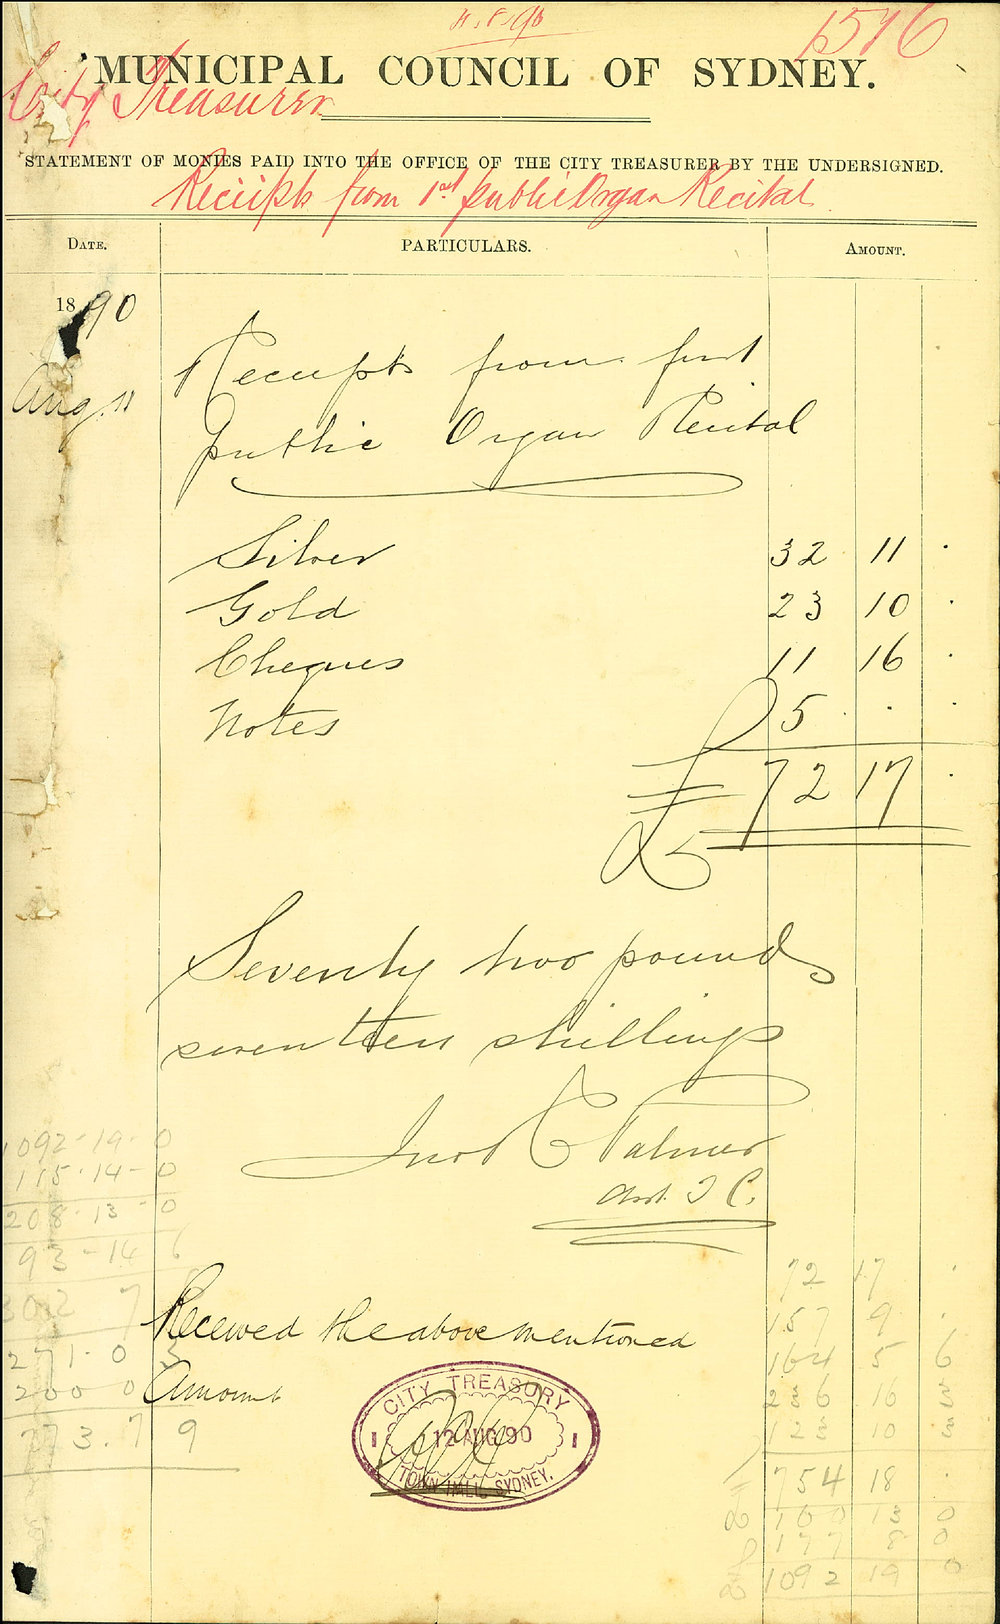 1516
MUNICIPAL COUNCIL OF SYDNEY.
City Treasurer
STATEMENT OF MONIES PAID INTO THE OFFICE OF THE CITY TREASURER BY THE UNDERSIGNED.
Receipts from 1st public Organ Recital
DATE. PARTICULARS. AMOUNT.
1890
Aug. 11 Receipts from first
public Organ Recital
Silver 32 11 .
Gold 23 10 .
Cheques 11 16 .
Notes 5 . .
£ 72 17 .
Seventy two pounds
seventeen shillings
Jno C Palmer
Asst. T C.
1092-19-0
115-14-0
208-13-0
93-14 6
302 7
271-0 3
200 0
773.7 9
Received the above mentioned
Amount
CITY TREASURY
12 AUG. 90
TOWN HALL SYDNEY.
72 17 .
157 9 .
164 5 6
236 16 3
123 10 3
£ 754 18 .
160 13 0
177 8 0
£ 1092 19 0